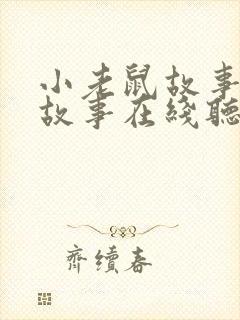 小老鼠故事
故事在綫聽
齊續春